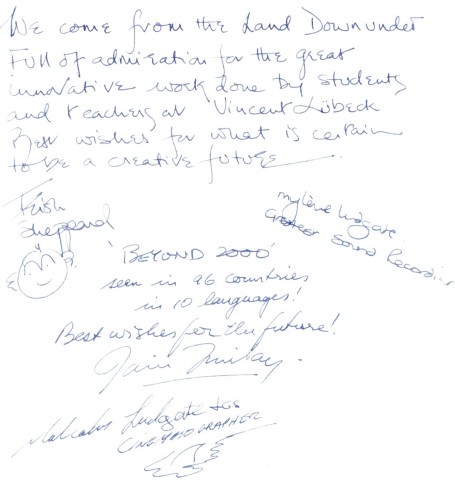 We come from the Land Down under
Full of admiration for the great
innovative work done by students
and teachers at Vincent Lübeck
Best wishes for what is certain
to be a creative future
Trish
Sheppard
mylène ludgate
Sound Recordist
'BEYOND 2000'
seen in 96 countries
in 10 languages!
Best wishes for the future!
Iain Finlay.
Malcolm Ludgate
CINEMATOGRAPHER